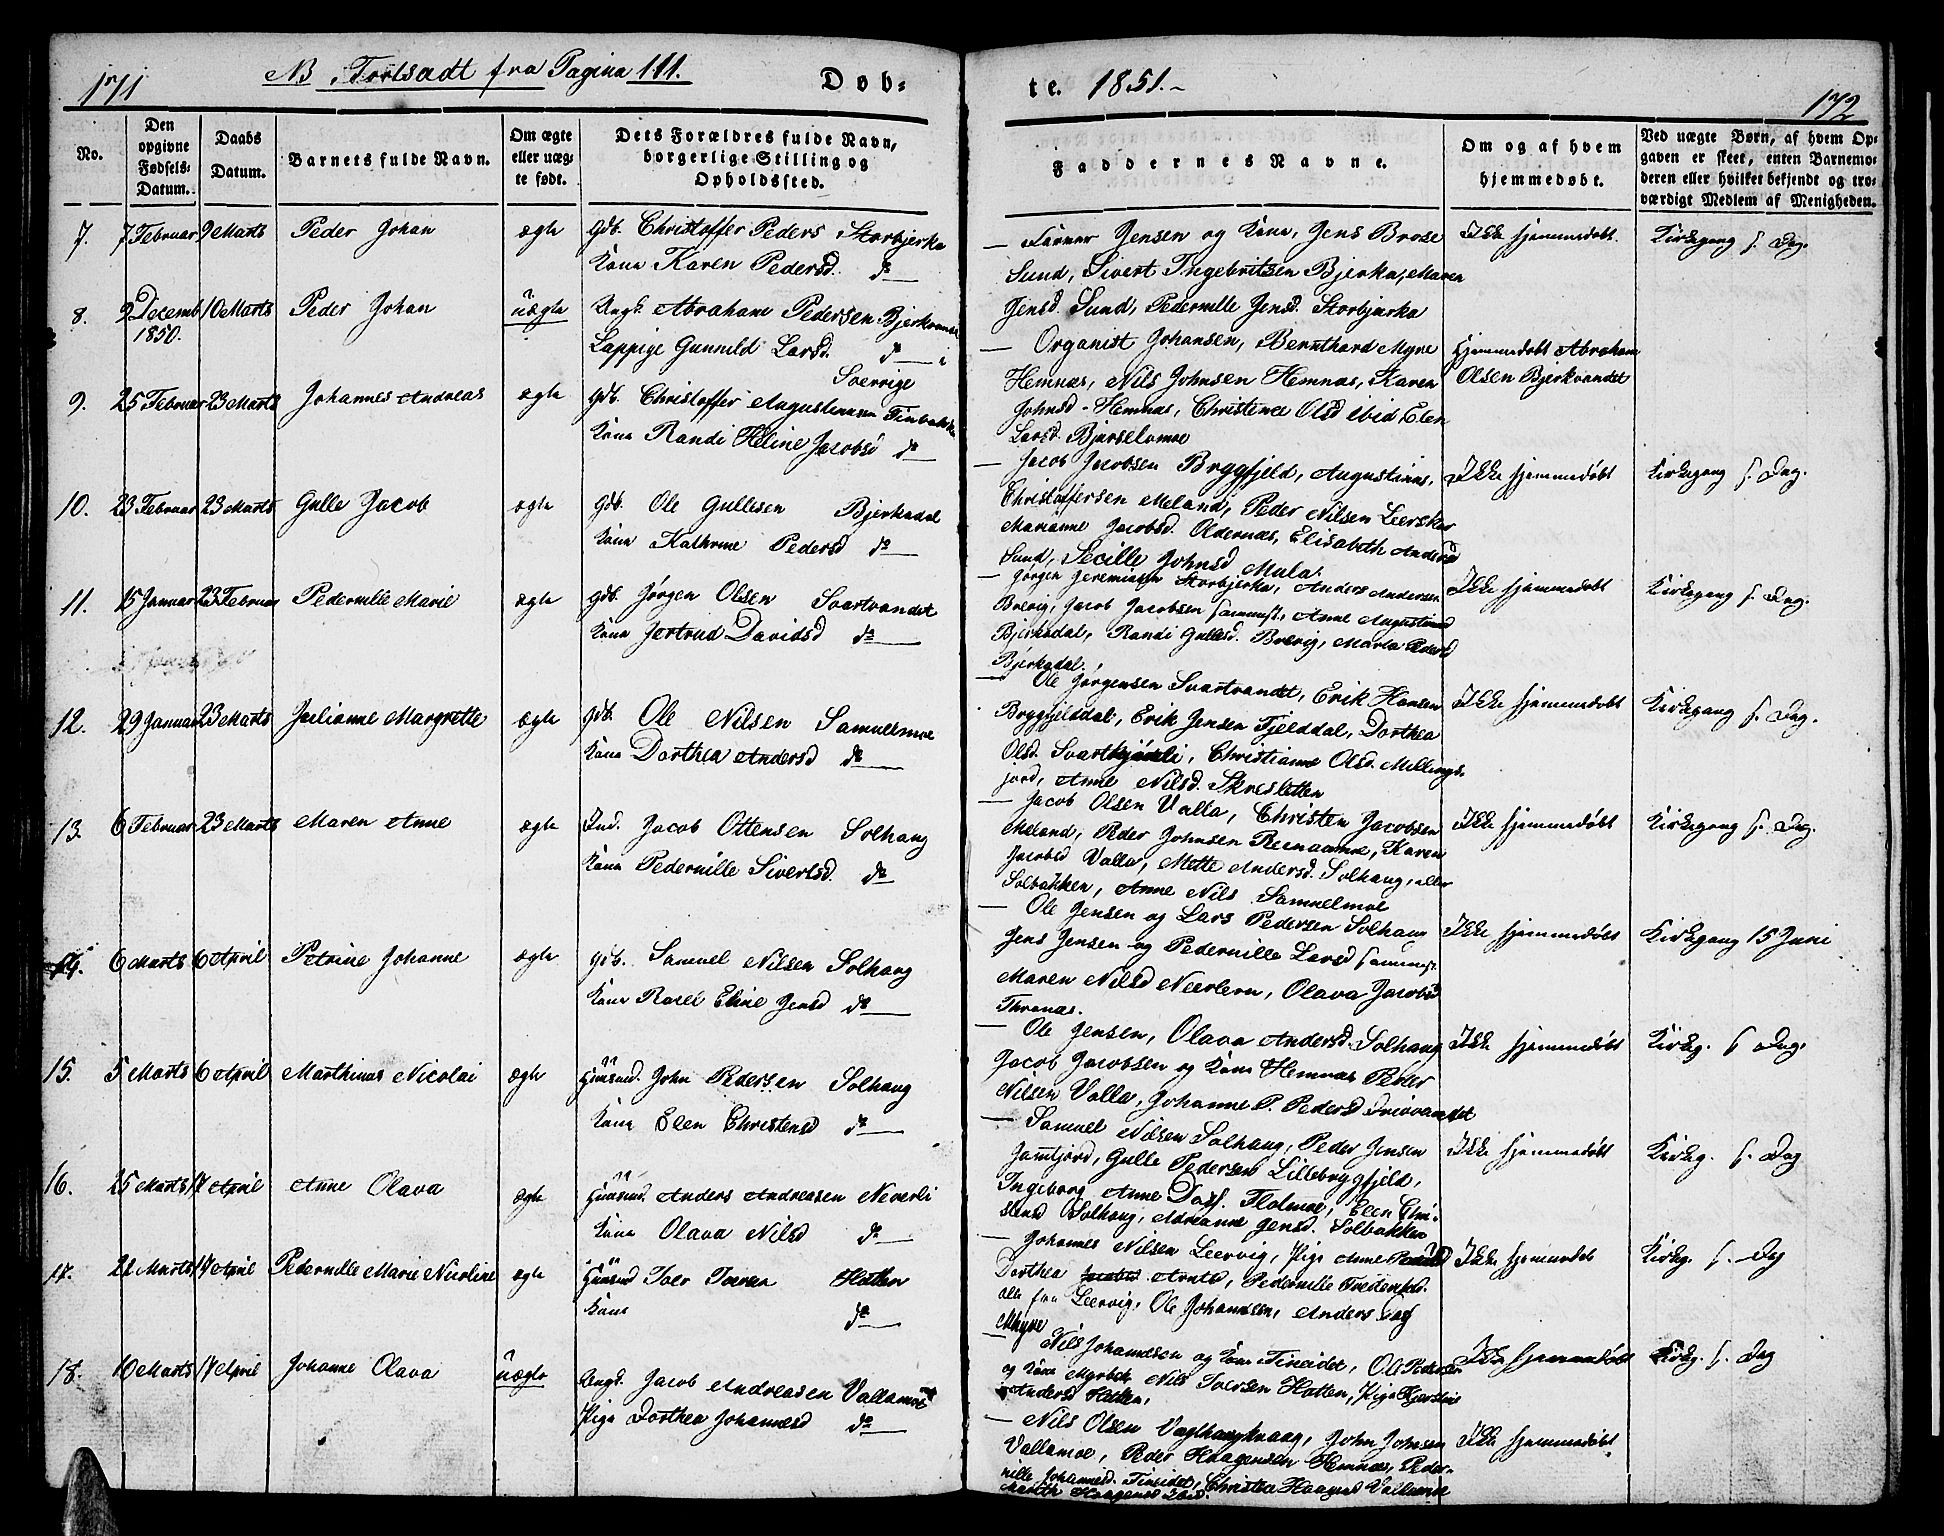 171
NB Fortsadt fra Pagina 111.
Døb-
te. 1851.-
172
No.
Den opgivne Fødsels-Datum.
Daabs Datum.
Barnets fulde Navn.
Om ægte eller uæg-te født.
Dets Forældres fulde Navn, borgerlige Stilling og Opholdssted.
Faddernes Navne.
Om og af hvem hjemmedøbt.
Ved uægte Børn, af hvem Op-gaven er skeet, enten Barnemo-deren eller hvilket bekjendt og tro-værdigt Medlem af Menigheden.
7. 7 Februar 9 Marts Peder Johan ægte Gdb. Christoffer Peders Storbjerka
Kone Karen Pedersd. do
Jensen og Kone, Jens Brose
Sund, Sivert Ingebritsen Bjerka, Maren
Jensd Sund, Pedernille Jensd. Storbjerka
Ikke hjemmedøbt. Kirkegang s. Dag.
8. 9 Decemb 1850. 10 Marts Peder Johan uægte Ungk. Abraham Pedersen Bjerkvandet
Lappige Gunnild Larsd. do i
Sverrige
Organist Johansen, Bernthard Myre
Hemnæs, Nils Johnsen Hemnæs, Karen
Johnsd. Hemnæs, Christine Olsd ibid, Elen
Larsd.
Hjemmedøbt Abraham
Olsen Bjerkvandet
9. 25 Februar 23 Marts Johannes Andreas ægte Gdb. Christoffer Augustinusen
Kone Randi Heline Jacobsd do
Jacob Jacobsen Bryggfjeld, Augustinus,
Christoffersen Meland, Peder Nilsen Leerskar
Marianne Jacobsd. Oldernæs, Elisabeth Andersd
Sund, Secille Johnsd Mula.
Ikke hjemmedøbt Kirkegang s. Dag.
10. 23 Februar 23 Marts Gulle Jacob ægte Gdb. Ole Gullesen Bjerkadal
Kone Kathrine Pedersd do
Jørgen Jeremiasen Storbjerka, Anders Andersen
Brevig, Jacob Jacobsen sammest., Anne Augustinusd
Bjerkadal, Randi Gullesd. Brevig, Maria Pedersd
Bjerkadal.
Ikke hjemmedøbt Kirkegang s. Dag.
11. 15 Januar 23 Februar Pedernille Marie ægte Gdb. Jørgen Olsen Svartvandet
Kone Jertrud Davidsd do
Ole Jørgensen Svartvandet, Erik Hansen
Bryggfjelddal, Erik Jensen Fjelddal, Dorthea
Olsd. , Christianne Olsd. Millings-
jord, Anne Nilsd. Skresletten
Ikke hjemmedøbt Kirkegang s. Dag.
12. 29 Januar 23 Marts Julianne Margrette ægte Gdb. Ole Nilsen Samuelmoe
Kone Dorthea Andersd do
Jacob Olsen Valla, Christen Jacobsen
Meland, Peder Johnsen , Karen
Jacobsd Valla, Mette Andersd. Solhaug,
Solbakken, Anne Nils Samuelmoe
Ikke hjemmedøbt Kirkegang s. Dag.
13. 6 Februar 23 Marts Maren Anne ægte Ind. Jacob Ottensen Solhaug
Kone Pedernille Sivertsd. do
Ole Jensen og Lars Pedersen Solhaug
Jens Jensen og Pedernille Larsd sammest.
Maren Nilsd Neverlien, Olava Jacobsd
Thronæs.
Ikke hjemmedøbt Kirkegang 15 Juni
14. 6 Marts 6 April Petrine Johanne ægte Gdb. Samuel Nilsen Solhaug
Kone Rael Eline Jensd do
Ole Jensen, Olava Andersd. Solhaug
Jacob Jacobsen og Kone Hemnæs Peder
Nilsen Valla, Johanne P. Pedersd
Ikke hjemmedøbt Kirkg. s. Dag.
15. 5 Marts 6 April Marthinus Nicolai ægte Huusmd. John Pedersen Solhaug
Kone Elen Christensd do
Samuel Nilsen Solhaug, Peder Jensen
Jamtjord, Gulle Pedersen Lillebryggfjeld,
Ingeborg Anne , Elen Chri-
stensd Solhaug, Adrianne Jensd. Solbakken
Ikke hjemmedøbt Kirkg. s. Dag
16. 25 Marts 17 April Anne Olava ægte Huusmd. Anders Andreasen Neverli
Kone Olava Nilsd do
Johannes Nilsen Leervig, Pige Anne
Dorthea Arntsd, Pedernille
alle fra Leervig, Ole Johannsen, Anders
Myre
Ikke hjemmedøbt Kirkg. s. Dag
17. 22 Marts 17 April Pedernille Marie Nicoline ægte Huusmd Iver Iversen Hatten
Kone do
Nils Johannesen og Kone Tineidet, Ole Pedersen
og Kone , Nils Iversen Hatten, Pige
Andersd Hatten,
Ikke hjemmedøbt Kirkg. s. Dag
18. 16 Marts 17 April Johanne Olava uægte Ungk. Jacob Andreasen Vallamoe
Pige Dorthea Johannesd do
Nils Olsen , John Johnsen
Vallamoe, Peder Haagensen Hemnæs, Peder-
nille Johannesd. Tineidet, Christen Haagensd Vallamoe
Haagensd ibid.
Ikke hjemmedøbt